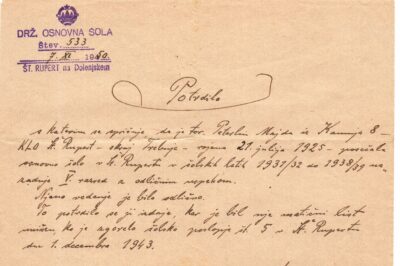 DRŽ. OSNOVNA ŠOLA
Štev. 533
7. XI. 1950.
ŠT. RUPERT na Dolenjskem
Potrdilo
s katerim se spričuje, da je tov. Majda iz Kamnja 8 -
KLO Št. Rupert - okraj Trebnje - rojena 21. julija 1925 - posečala
osnovno šolo v Št. Rupertu v šolskih letih 1931/32 do 1938/39 na-
zadnje V. razred z odličnim uspehom.
Njeno vedenje je bilo odlično.
To potrdilo se ji izdaja, ker je bil nje matični list
uničen, ko je zgorelo šolsko poslopje št 5 v Št. Rupertu
dne 1. decembra 1943.